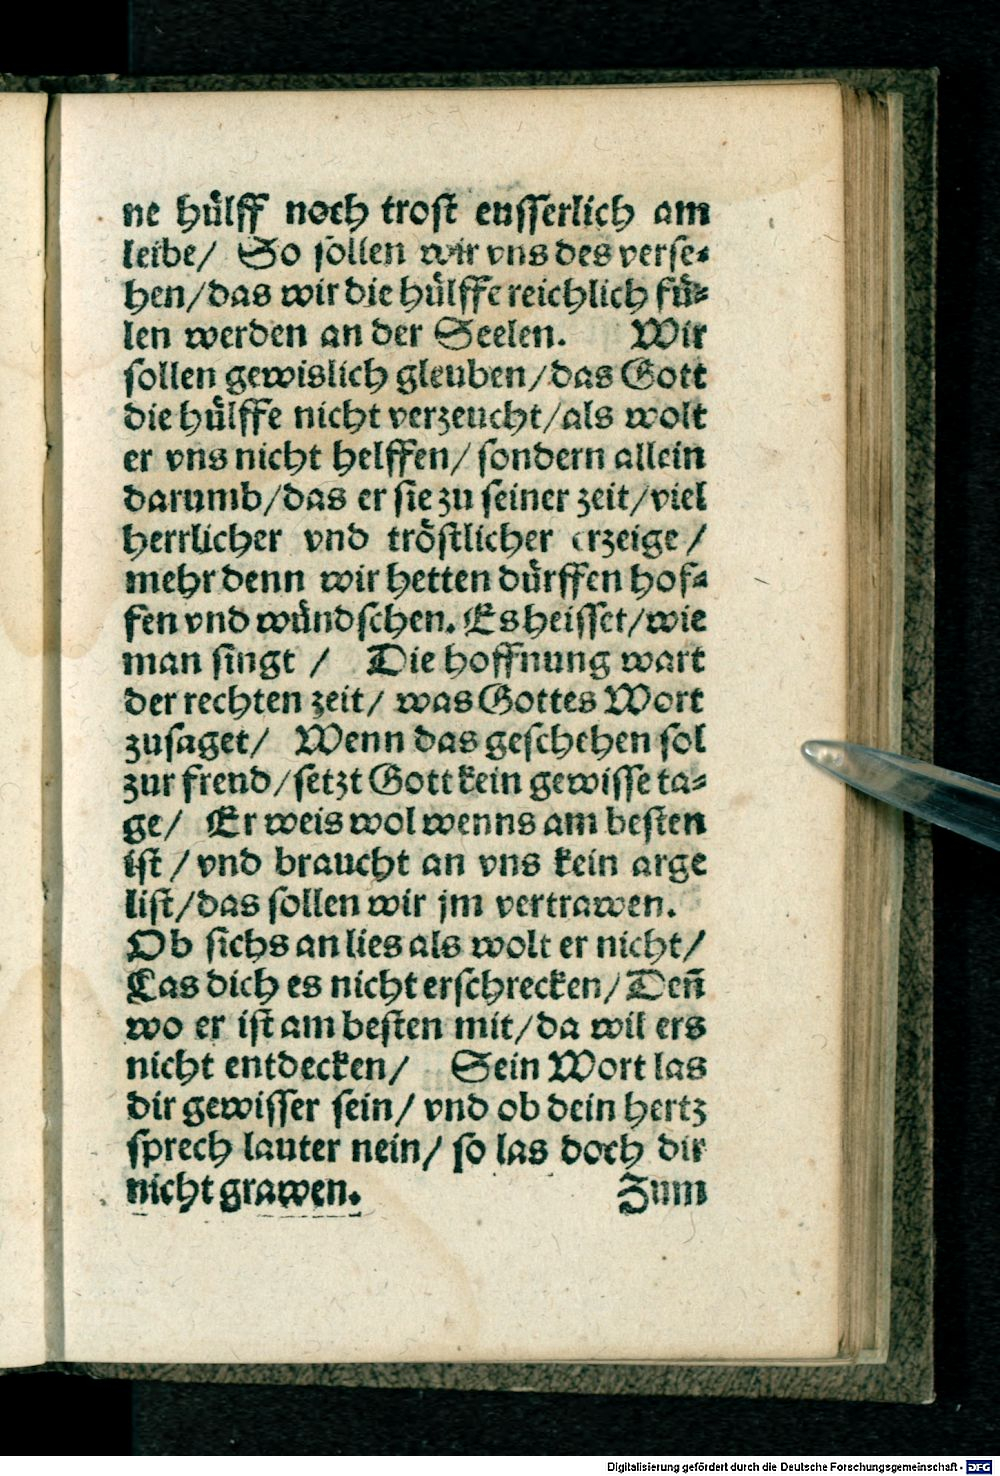 ne huͤlff noch trost eusserlich am
leibe/ So sollen wir vns des verse⸗
hen/das wir die huͤlffe reichlich fuͤ⸗
len werden an der Seelen. Wir
sollen gewislich gleuben/das Gott
die huͤlffe nicht verzeucht/als wolt
er vns nicht helffen/ sondern allein
darumb/das er sie zu seiner zeit/viel
herrlicher vnd troͤstlicher erzeige/
mehr denn wir hetten duͤrffen hof⸗
fen vnd wuͤndschen. Es heisset/wie
man singt / Die hoffnung wart
der rechten zeit/ was Gottes Wort
zusaget/ Wenn das geschehen sol
zur freud/setzt Gott kein gewisse ta⸗
ge/ Er weis wol wenns am besten
ist/ vnd braucht an vns kein arge
list/das sollen wir jm vertrawen.
Ob sichs an lies als wolt er nicht/
Las dich es nicht erschrecken/Deñ
wo er ist am besten mit/da wil ers
nicht entdecken/ Sein Wort las
dir gewisser sein/ vnd ob dein hertz
sprech lauter nein/ so las doch dir
nicht grawen. Zum
Digitalisierung gefördert durch die Deutsche Forschungsgemeinschaft - DFG